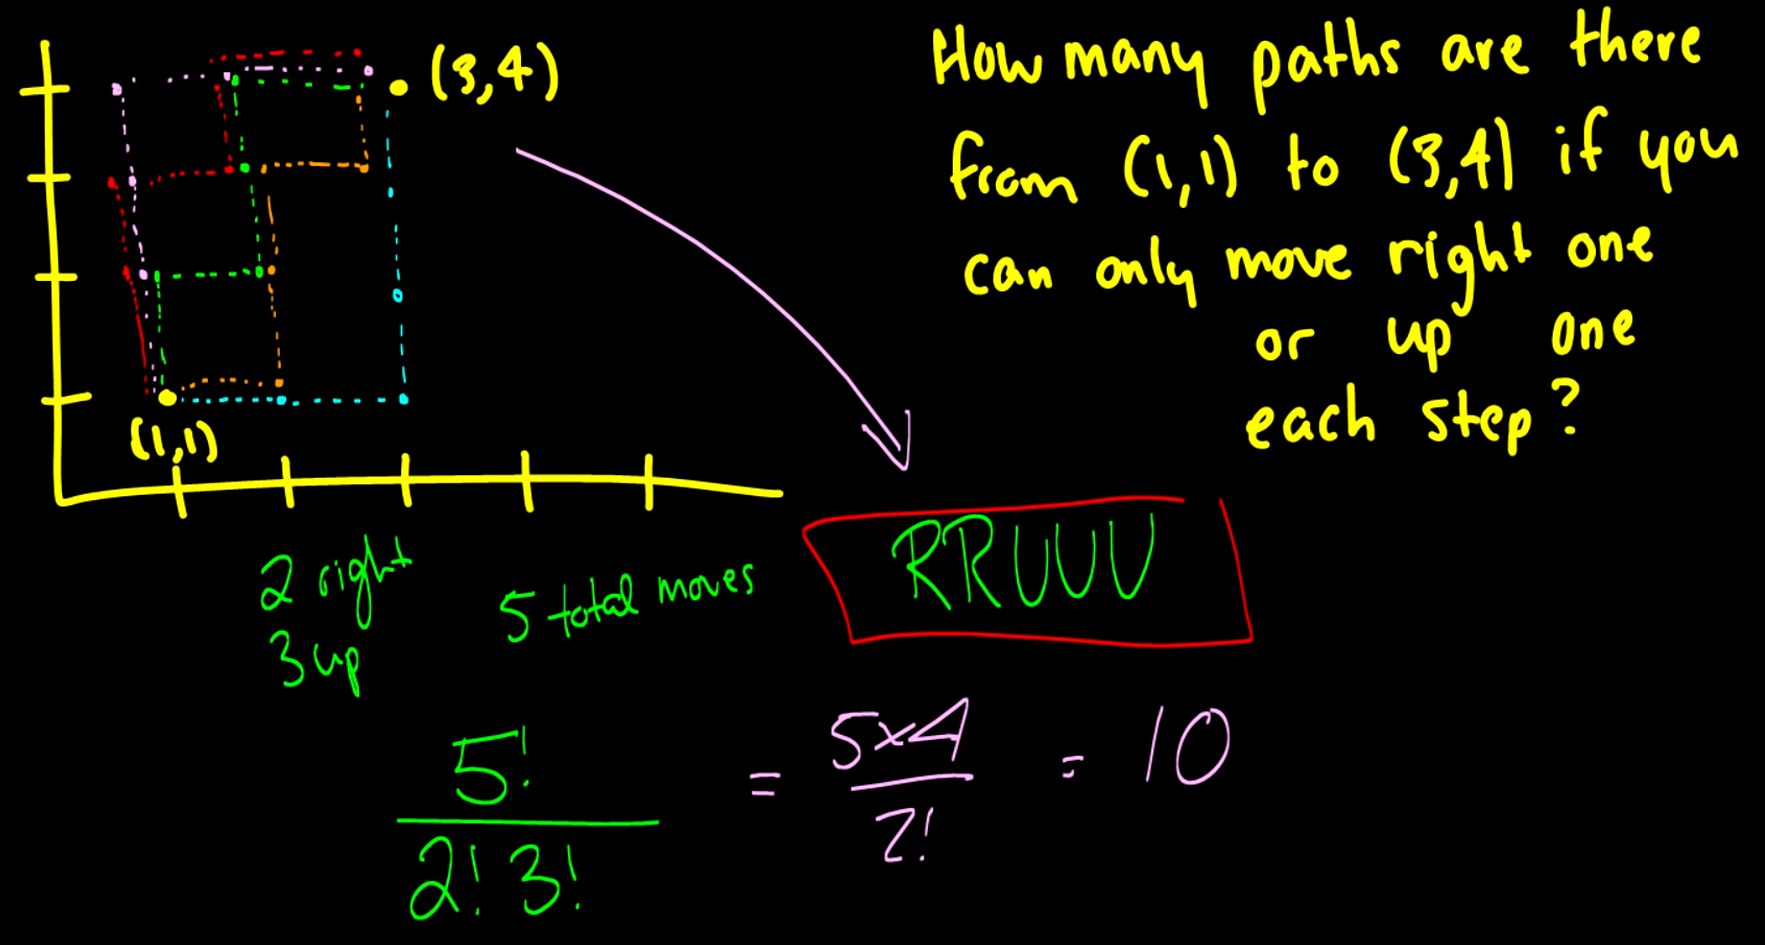 (3,4)
How many paths are there
from (1,1) to (3,4) if you
can only move right one
or up one
each step?
(1,1)
2 right
3 up
5 total moves
RRUUU
5!
2! 3!
= 5x4
2!
= 10